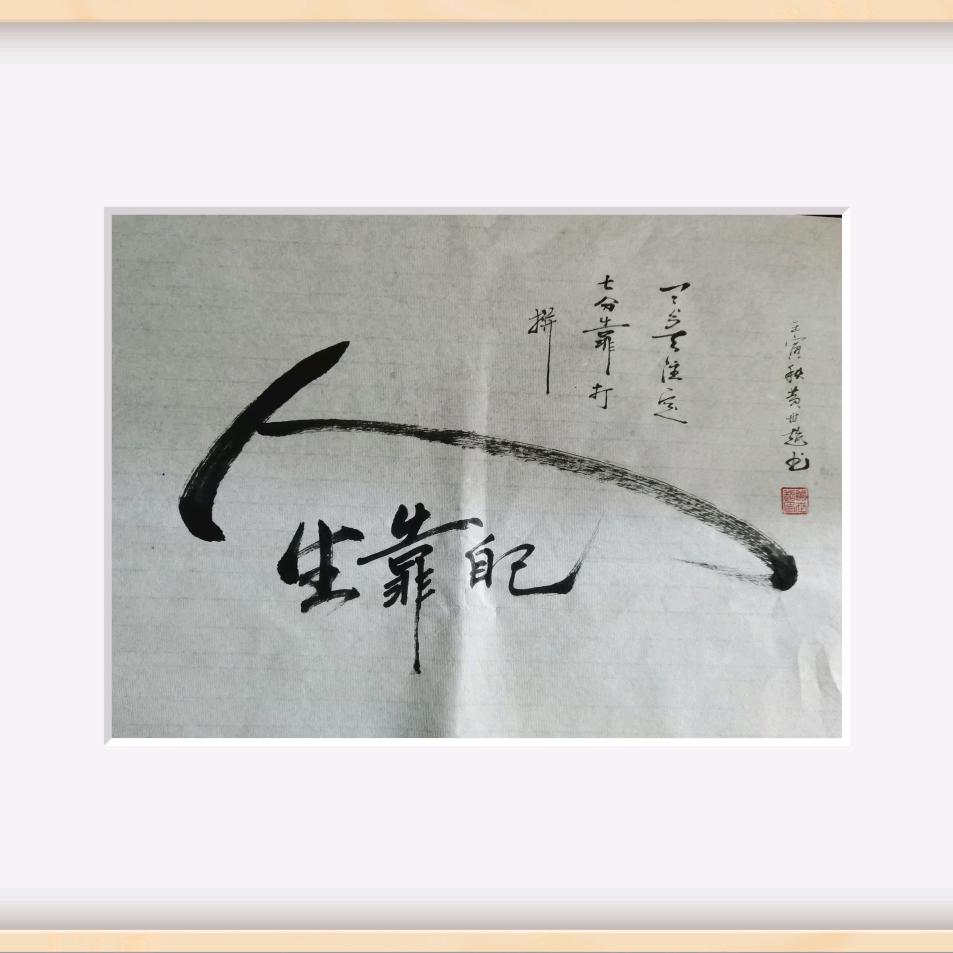 人生靠自己
三分天注定
七分靠打
拼
壬寅秋黄世书